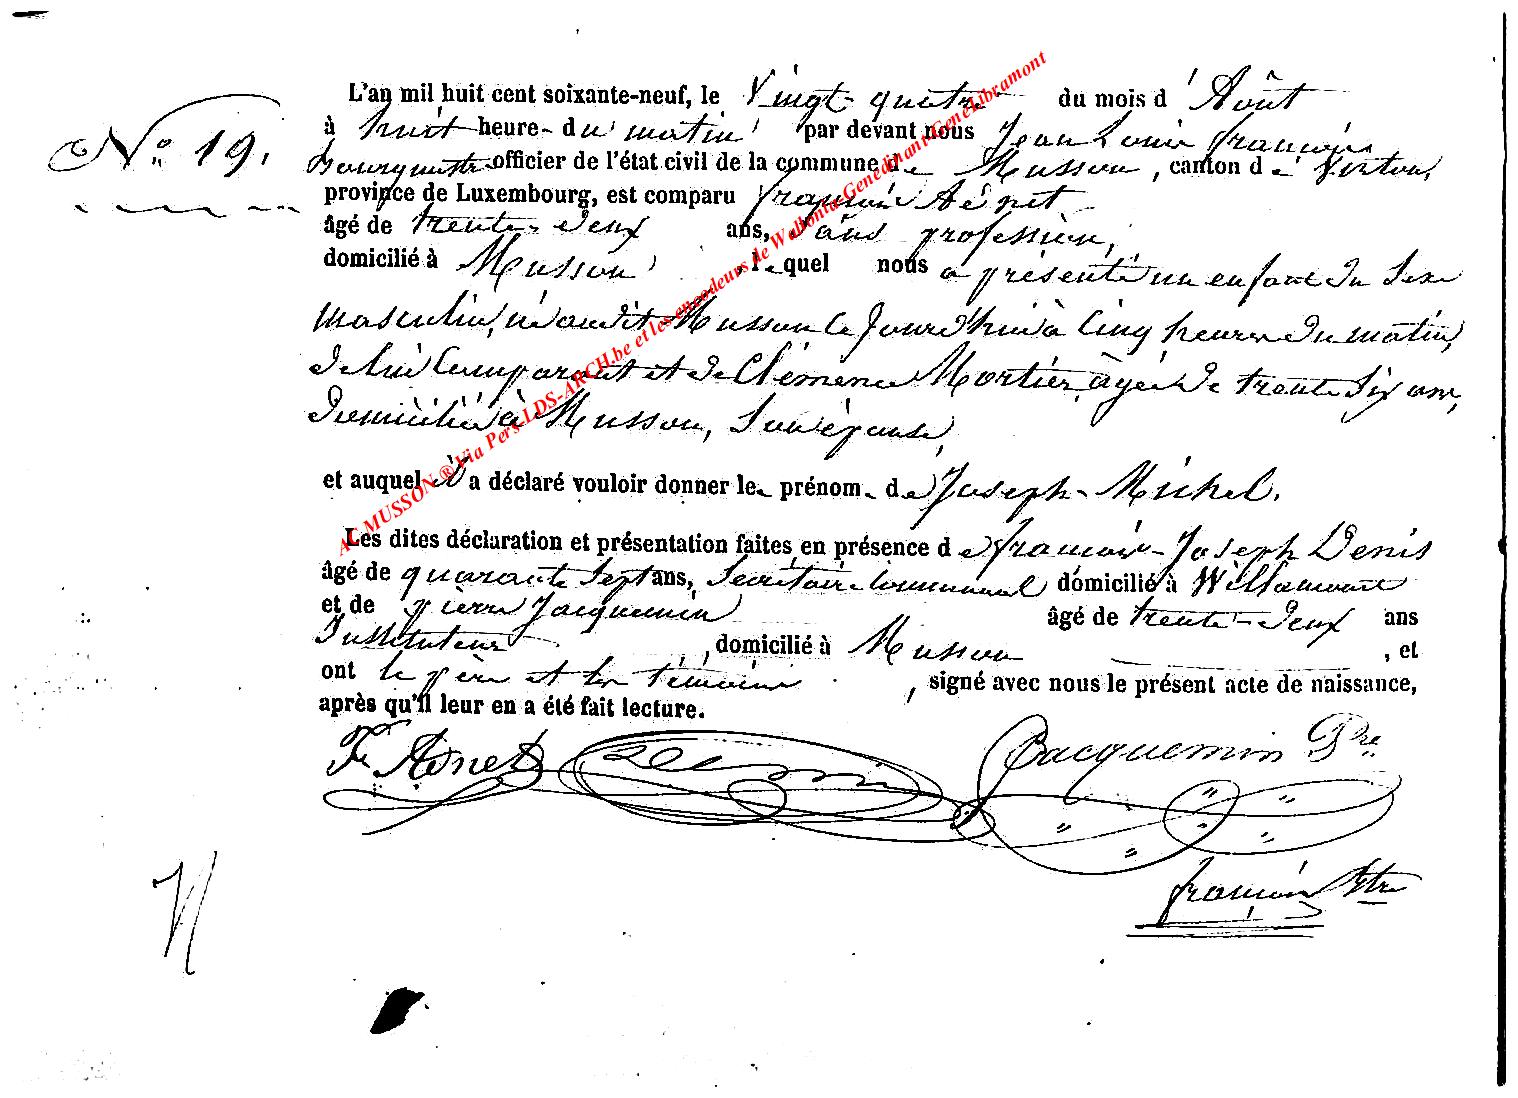 L'an mil huit cent soixante-neuf, le Vingt-quatre du mois d' Août
N° 19.
à huit heure- du matin par devant nous Jean Louis françois
Bourgmestre officier de l'état civil de la commune de Musson, canton de Virton,
province de Luxembourg, est comparu françois Adnet
âgé de trente-deux ans, sans profession,
domicilié à Musson, lequel nous a présenté un enfant du sexe
masculin, né audit Musson ce jourd'hui à cinq heures du matin,
de lui comparant et de Clémence Mortier, âgée de trente six ans,
domiciliée à Musson, son épouse,
et auquel il a déclaré vouloir donner les prénoms de Joseph-Michel.
Les dites déclaration et présentation faites en présence de françois-Joseph Denis
âgé de quarante sept ans, secrétaire communal domicilié à Willancourt
et de pierre Jacquemin âgé de trente-deux ans
Instituteur, domicilié à Musson, et
ont le père et les témoins, signé avec nous le présent acte de naissance,
après qu'il leur en a été fait lecture.
F. Adnet Jacquemin Pre
françois
AC MUSSON ® Via Pers-LDS-ARCH.be et les encodeurs de Wallonia-Genedinant-GeneLibramont